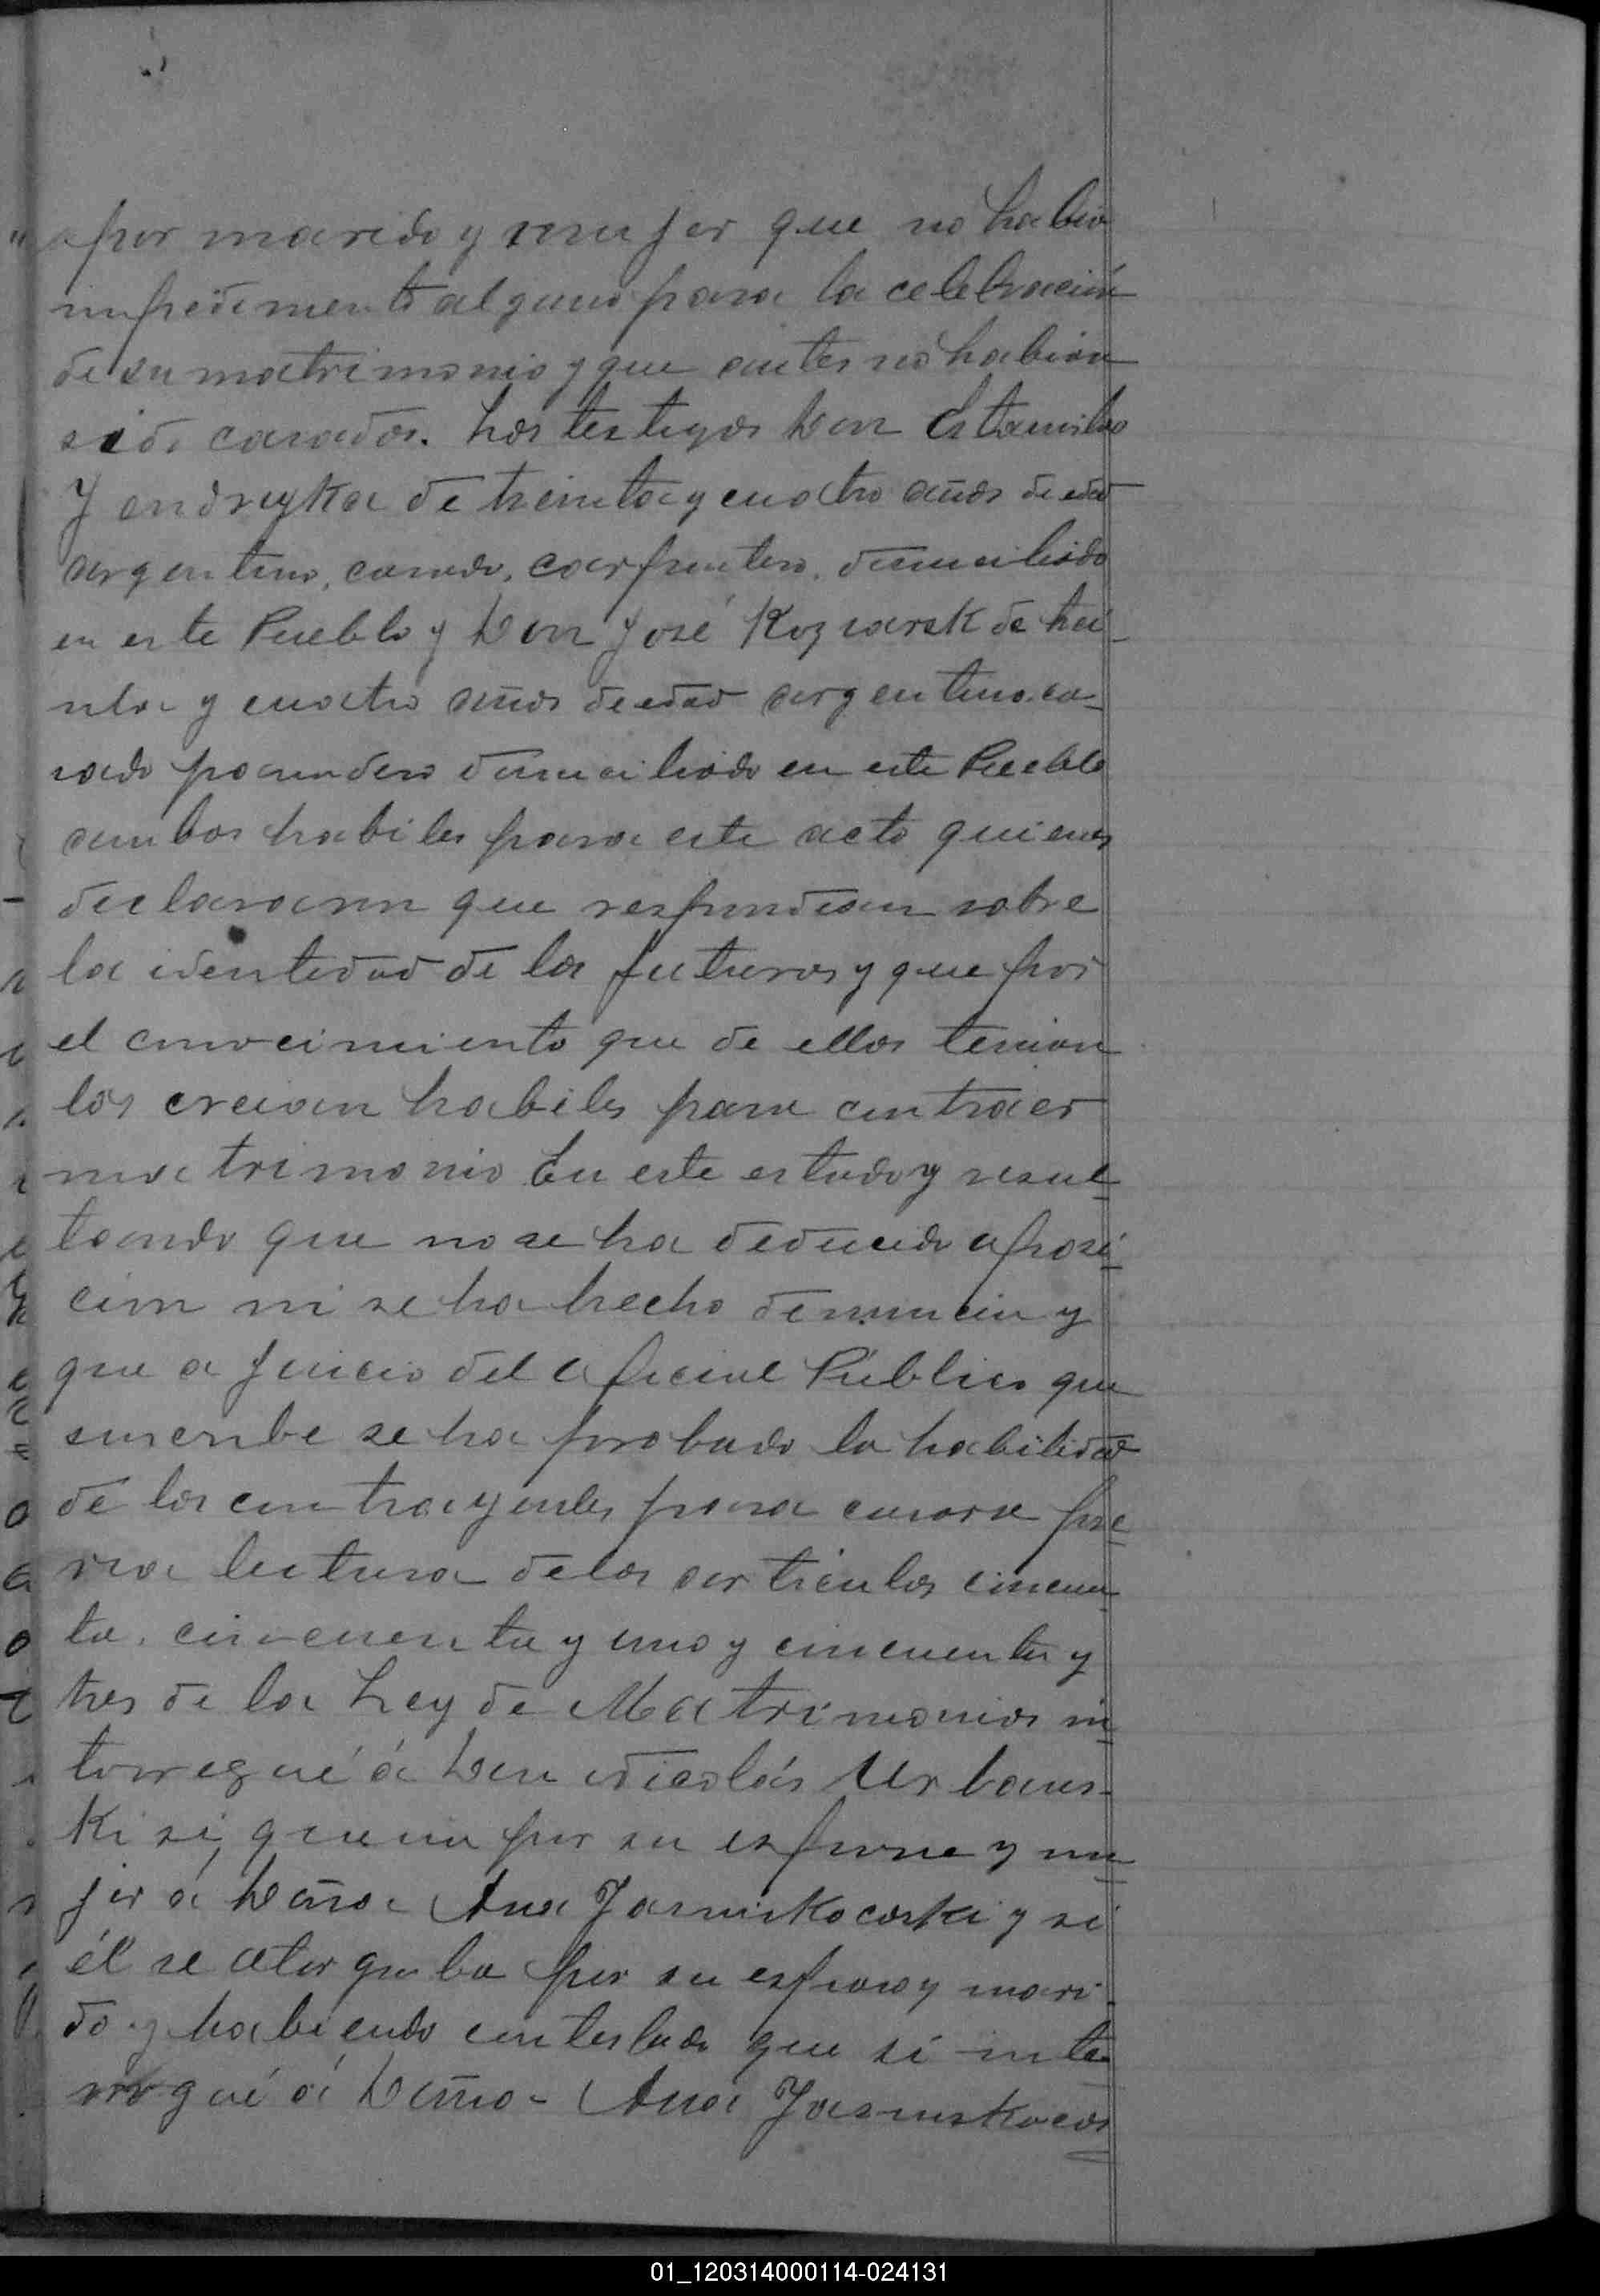 por marido y mujer que no habia
impedimento alguno para la celebración
de su matrimonio y que antes no habian
sido casados. Los testigos Don Estanislao
Jendreyka de treinta y cuatro años de edad
argentino, casado, carpintero, domiciliado
en este Pueblo y Don José Kozwarsk de trei-
nta y cuatro años de edad argentino, ca-
sado panadero domiciliado en este Pueblo
ambos habiles para este acto quienes
declararon que respondian sobre
la identidad de los futuros y que por
el conocimiento que de ellos tenian
los creian habiles para contraer
matrimonio En este estado y resul-
tando que no se ha deducido oposi-
cion ni se ha hecho denuncia y
que a juicio del Oficial Público que
suscribe se ha probado la habilidad
de los contrayentes para casarse pre-
via lectura de los articulos cincuen-
ta, cincuenta y uno y cincuenta y
tres de la Ley de Matrimonios in-
torregué á Don Nicolás Urbans-
ki si queria por su esposa y mu-
jer á Doña Ana Jasniskocoski y si
él se otorgaba por su esposo y mari-
do y habiendo contestado que si inte-
rrogué á Doña Ana Jasniskocos
01_120314000114-024131